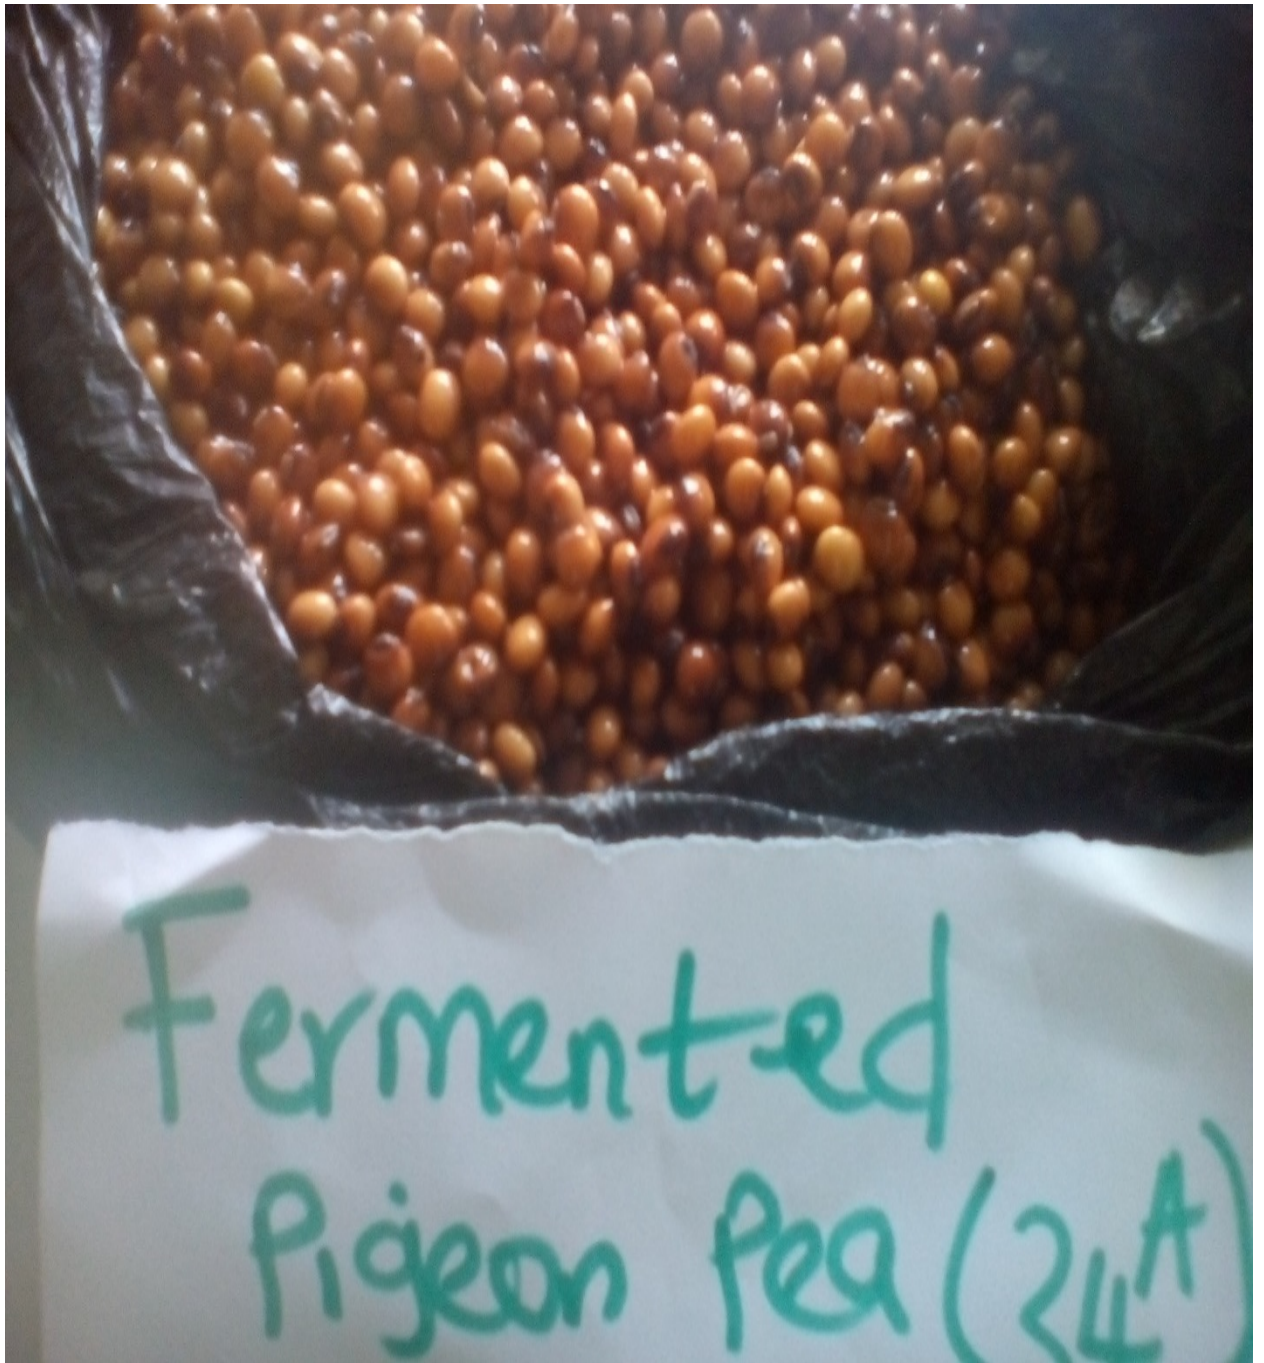 Fermented
Pigeon Pea (24A)